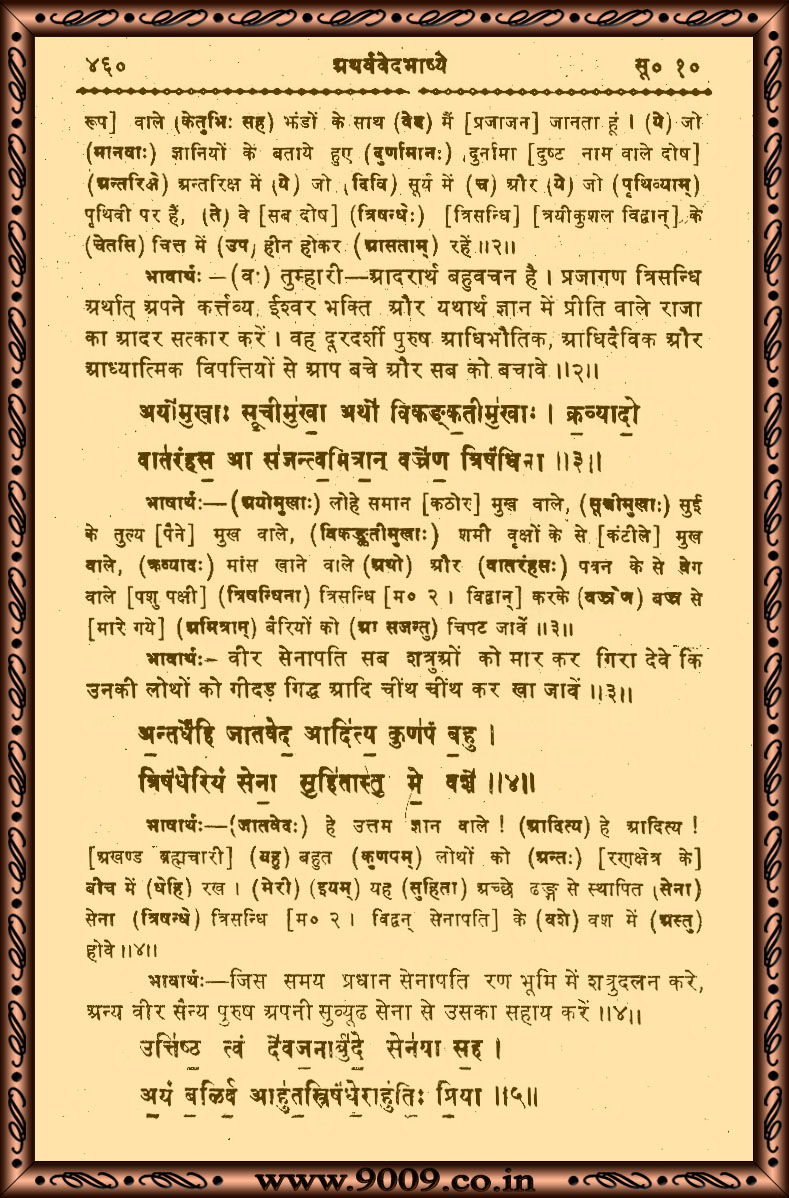 ४६० अथर्ववेदभाष्ये सू० १०
रूप] वाले (केतुभिः सह) झंडों के साथ (वेद) मैं [प्रजाजन] जानता हूं । (ये) जो
(मानवाः) ज्ञानियों के बताये हुए (दुर्णामानः) दुर्नामा [दुष्ट नाम वाले दोष]
(अन्तरिक्षे) अन्तरिक्ष में (ये) जो (दिवि) सूर्य में (च) और (ये) जो (पृथिव्याम्)
पृथिवी पर हैं, (ते) वे [सब दोष] (त्रिषन्धेः) [त्रिसन्धि] [त्रयीकुशल विद्वान्] के
(चेतसि) चित्त में (उप) हीन होकर (आसताम्) रहें ॥२॥
भावार्थः—(वः) तुम्हारी—आदरार्थ बहुवचन है । प्रजागण त्रिसन्धि
अर्थात् अपने कर्त्तव्य, ईश्वर भक्ति और यथार्थ ज्ञान में प्रीति वाले राजा
का आदर सत्कार करें । वह दूरदर्शी पुरुष आधिभौतिक, आधिदैविक और
आध्यात्मिक विपत्तियों से आप बचे और सब को बचावे ॥२॥
अयो॑मुखाः सू॒चीमु॑खा॒ अथो॑ विकङ्क॒तीमु॑खाः । क्र॒व्यादो॒
वात॑रंहस॒ आ स॑जन्त्व॒मित्रा॒न् वज्रे॑ण॒ त्रिष॑न्धिना ॥३॥
भाषार्थः—(अयोमुखाः) लोहे समान [कठोर] मुख वाले, (सूचीमुखाः) सुई
के तुल्य [पैने] मुख वाले, (विकङ्कतीमुखाः) शमी वृक्षों के से [कंटीले] मुख
वाले, (क्रव्यादः) मांस खाने वाले (अथो) और (वातरंहसः) पवन के से वेग
वाले [पशु पक्षी] (त्रिषन्धिना) त्रिसन्धि [म० २ । विद्वान्] करके (वज्रेण) वज्र से
[मारे गये] (अमित्रान्) बैरियों को (आ सजन्तु) चिपट जावें ॥३॥
भावार्थः— वीर सेनापति सब शत्रुओं को मार कर गिरा देवे कि
उनकी लोथों को गीदड़ गिद्ध आदि चींथ चींथ कर खा जावें ॥३॥
अ॒न्तर्धे॑हि जातवेद॒ आदि॑त्य॒ कुण॑पं ब॒हु ।
त्रिष॑न्धेरि॒यं सेना॒ सुहि॑तास्तु॒ मे॒ वशे॑ ॥४॥
भाषार्थः—(जातवेदः) हे उत्तम ज्ञान वाले ! (आदित्य) हे आदित्य !
[अखण्ड ब्रह्मचारी] (बहु) बहुत (कुणपम्) लोथों को (अन्तः) [रणक्षेत्र के]
बीच में (धेहि) रख । (मेरी) (इयम्) यह (सुहिता) अच्छे ढङ्ग से स्थापित (सेना)
सेना (त्रिषन्धे) त्रिसन्धि [म० २ । विद्वन् सेनापति] के (वशे) वश में (अस्तु)
होवे ॥४॥
भावार्थः—जिस समय प्रधान सेनापति रण भूमि में शत्रुदलन करे,
अन्य वीर सैन्य पुरुष अपनी सुव्यूढ सेना से उसका सहाय करें ॥४॥
उत्ति॑ष्ठ॒ त्वं दे॑वज॒नार्बु॑दे॒ सेन॑या स॒ह ।
अ॒यं ब॒लिर्व॒ आहु॑त॒स्त्रिष॑न्धे॒राहु॑तिः प्रि॒या ॥५॥
www.9009.co.in